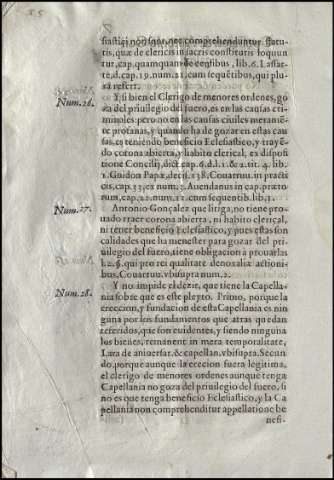 siastici non sunt, nec comprehenduntur statu-
tis, quæ de clericis in sacris constitutis loquun
tur, cap. quamquam de censibus, lib. 6. Lassar
te, d. cap. 19. num. 21. cum sequētibus, qui plu
ra refert.
Num. 26.
Y si bien el Clerigo de menores ordenes, go
za del priuilegio del fuero, es en las causas cri
minales: pero no en las causas ciuiles meramē
te profanas, y quando ha de gozar en estas cau
sas, es teniendo beneficio Eclesiastico, y trayē
do corona abierta, y habito clerical, es disposi
tione Concilij, dict. cap. 6. d. l. 1. & 2. tit. 4. lib.
1. Guidon Papæ, decis. 138. Couarruu. in pract
cis, cap. 33. ex num. 3. Auendanus in cap. prætor
rum, cap. 22. num. 11. cum sequentib. lib. 1.
Num. 27.
Antonio Gonçalez que litiga, no tiene pro
uado traer corona abierta, ni habito clerical,
ni tener beneficio Eclesiastico, y pues estas son
calidades que ha menester para gozar del pri
uilegio del fuero, tiene obligacion a prouarlas
l. 2. §. qui pro rei qualitate de noxalib. actioni-
bus, Couarruu. vbi supra num. 2.
Num. 28.
Y no impide el dezir, que tiene la Capella-
nia sobre que es este pleyto. Primo, porque la
ereccion, y fundacion de esta Capellania es nin
guna por los fundamentos que atras quedan
referidos, que son euidentes, y siendo ninguna
los bienes, remanent in mera temporalitate,
Lara de aniuersar. & capellan. vbi supra. Secun
do, porque aunque la ereciō fuera legitima,
el clerigo de menores ordenes aunque tenga
Capellania no goza del priuilegio del fuero, si
no es que tenga beneficio Eclesiastico, y la Ca
pellania non comprehenditur appellatione be
nefi-